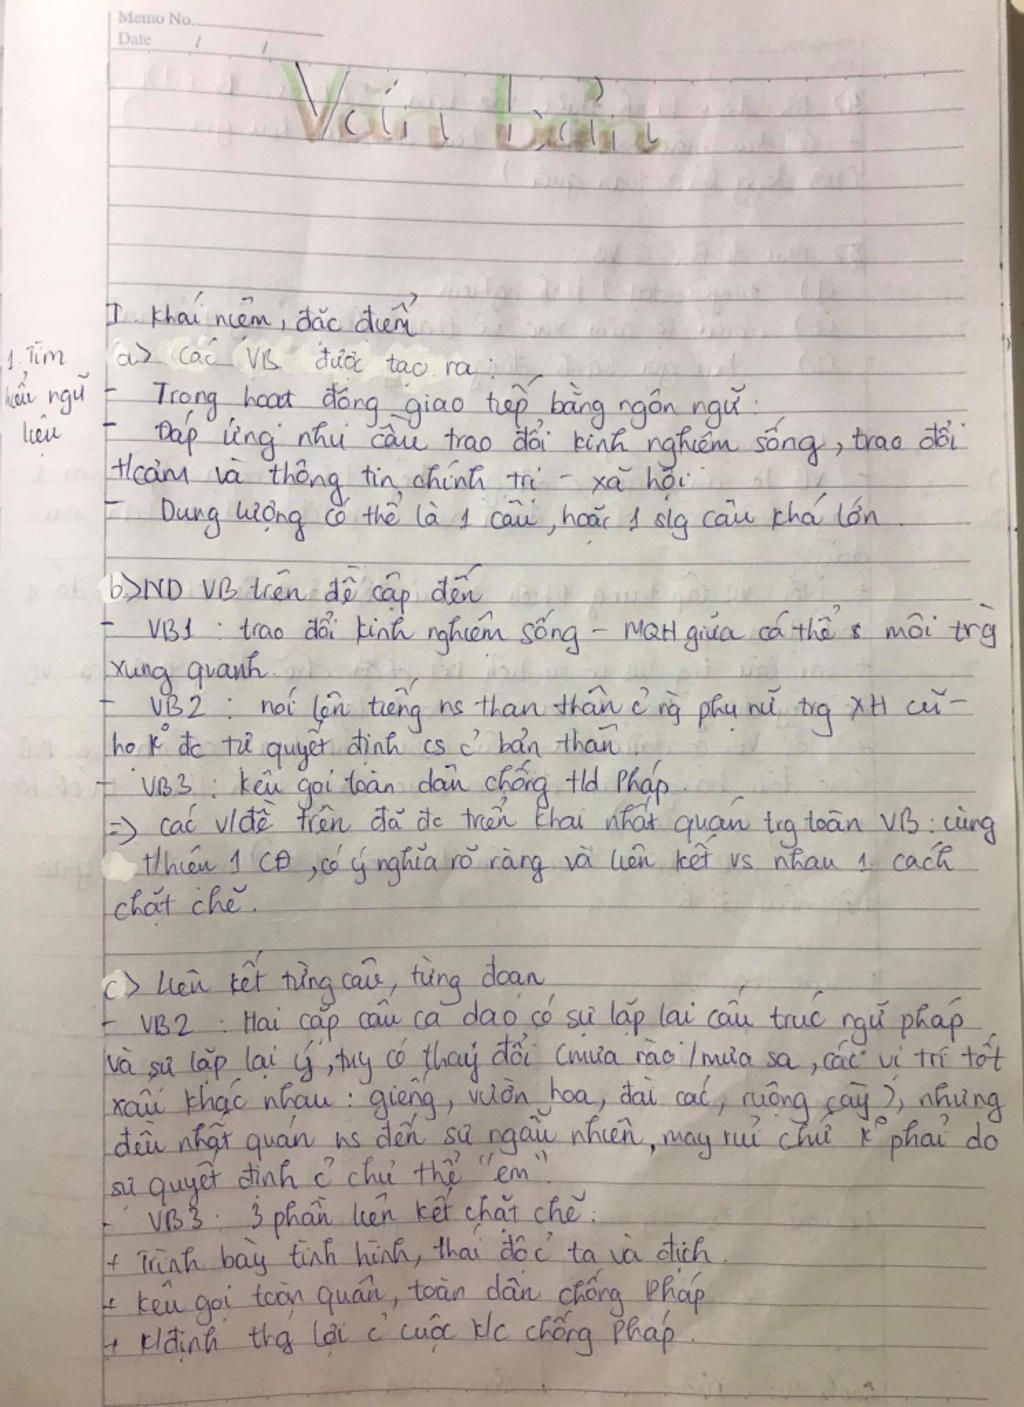 Memo No.
Date / /
Văn bản
I. Khái niệm, đặc điểm
1. Tìm hiểu ngữ liệu
a> Các VB được tạo ra:
- Trong hoạt động giao tiếp bằng ngôn ngữ.
- Đáp ứng nhu cầu trao đổi kinh nghiệm sống, trao đổi
t/cảm và thông tin chính trị - xã hội
- Dung lượng có thể là 1 câu, hoặc 1 slg câu khá lớn.
b> ND VB trên đề cập đến
- VB1: trao đổi kinh nghiệm sống - MQH giữa cá thể & môi trg
xung quanh.
- VB2: nói lên tiếng ns than thân c̉ ng̀ phụ nữ trg XH cũ -
họ k° đc tự quyết định cs c̉ bản thân.
- VB3: Kêu gọi toàn dân chống tld Pháp.
=> Các v/đề trên đã đc triển khai nhất quán trg toàn VB: cùng
t/hiện 1 CĐ, có ý nghĩa rõ ràng và liên kết vs nhau 1 cách
chặt chẽ.
c> Liên kết từng câu, từng đoạn
- VB2: Hai cặp câu ca dao có sự lặp lại cấu trúc ngữ pháp
và sự lặp lại ý, tuy có thay đổi (mưa rào / mưa sa, các vị trí tốt
xấu khác nhau: giếng, vườn hoa, đài các, ruộng cày), nhưng
đều nhất quán ns đến sự ngẫu nhiên, may rủi chứ k° phải do
sự quyết định c̉ chủ thể "em".
- VB3: 3 phần liên kết chặt chẽ:
+ Trình bày tình hình, thái độ c̉ ta và địch.
+ Kêu gọi toàn quân, toàn dân chống Pháp
+ K/định thg lợi c̉ cuộc k/c chống Pháp.